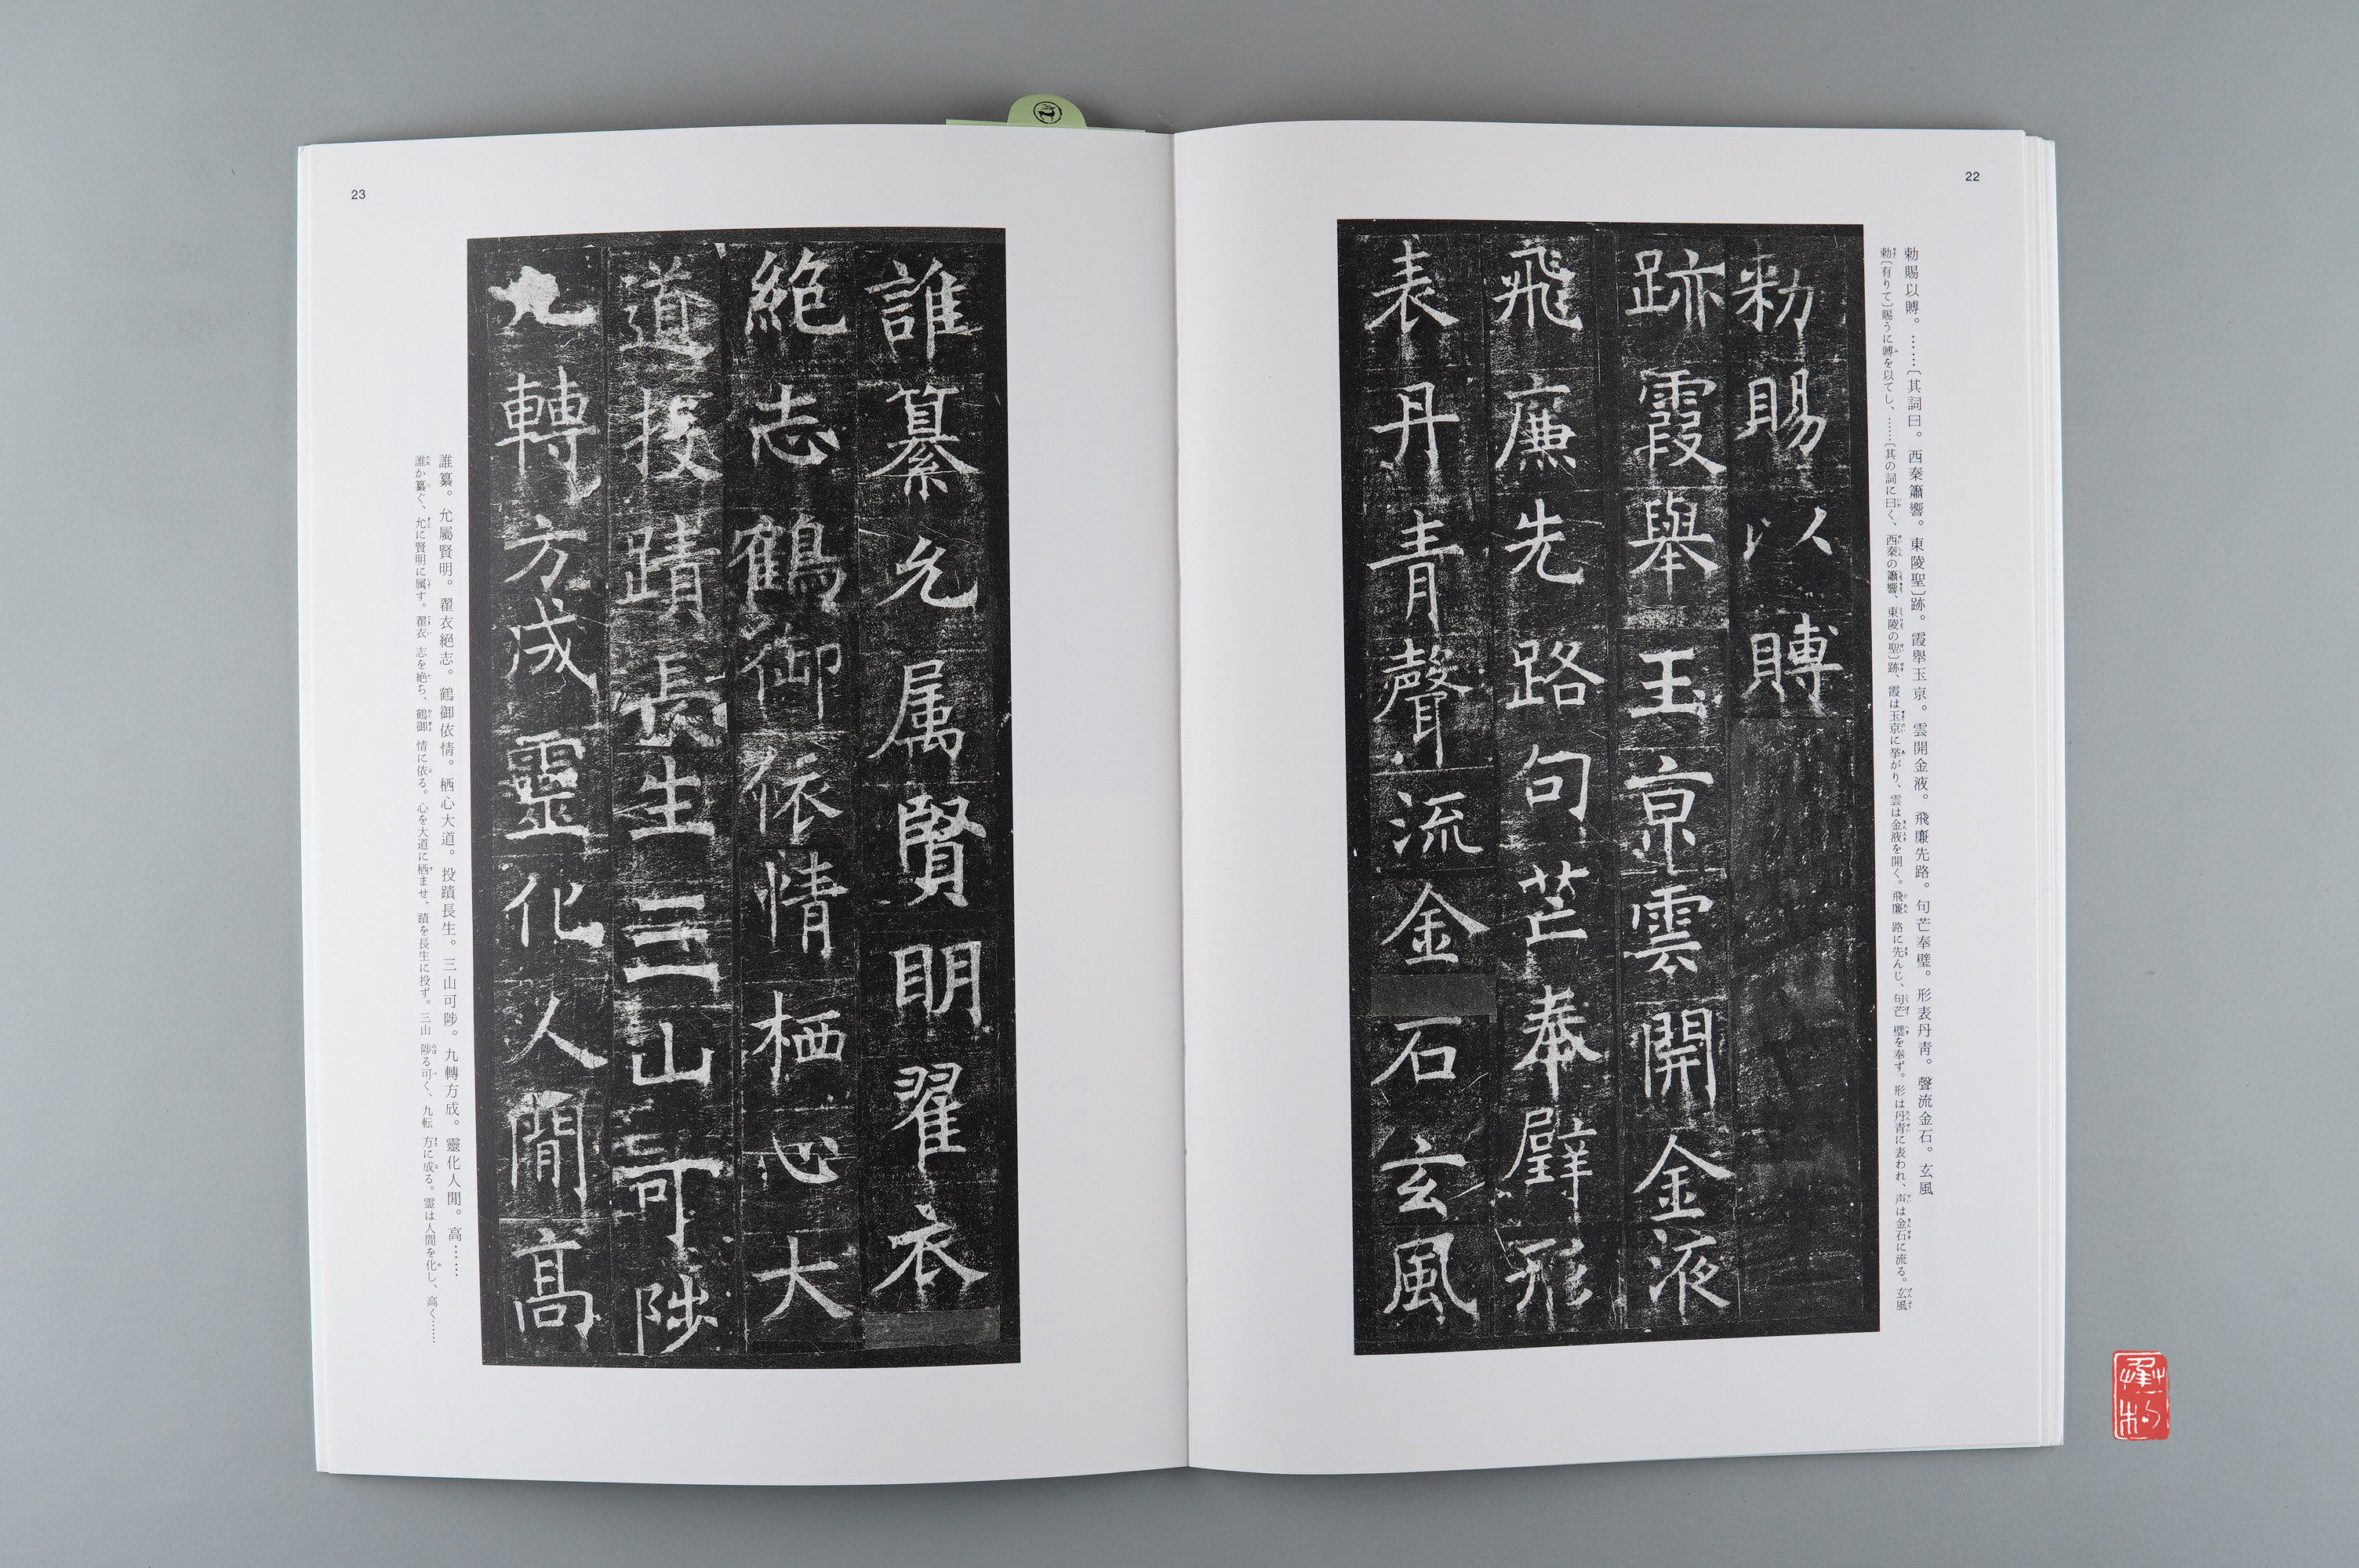 22
勅賜以賻。……〔其詞曰。西秦簫響。東陵聖〕跡。霞舉玉京。雲開金液。飛廉先路。句芒奉璧。形表丹靑。聲流金石。玄風
勅〔有りて〕賜うに賻を以てし、……〔其の詞に曰く、西秦の簫響、東陵の聖〕跡、霞は玉京に挙がり、雲は金液を開く。飛廉 路に先んじ、句芒 璧を奉ず。形は丹青に表われ、声は金石に流る。玄風
勑賜以賻
跡霞舉玉京雲開金液
飛廉先路句芒奉璧形
表丹青聲流金石玄風
23
誰纂允属賢明翟衣
絶志鶴御依情栖心大
道投蹟長生三山可陟
九轉方成靈化人閒高
誰纂。允屬賢明。翟衣絕志。鶴御依情。栖心大道。投蹟長生。三山可陟。九轉方成。靈化人閒。高……
誰か纂ぐ、允に賢明に属す。翟衣 志を絶ち、鶴御 情に依る。心を大道に栖ませ、蹟を長生に投ず。三山 陟る可く、九転 方に成る。霊は人間を化し、高く……